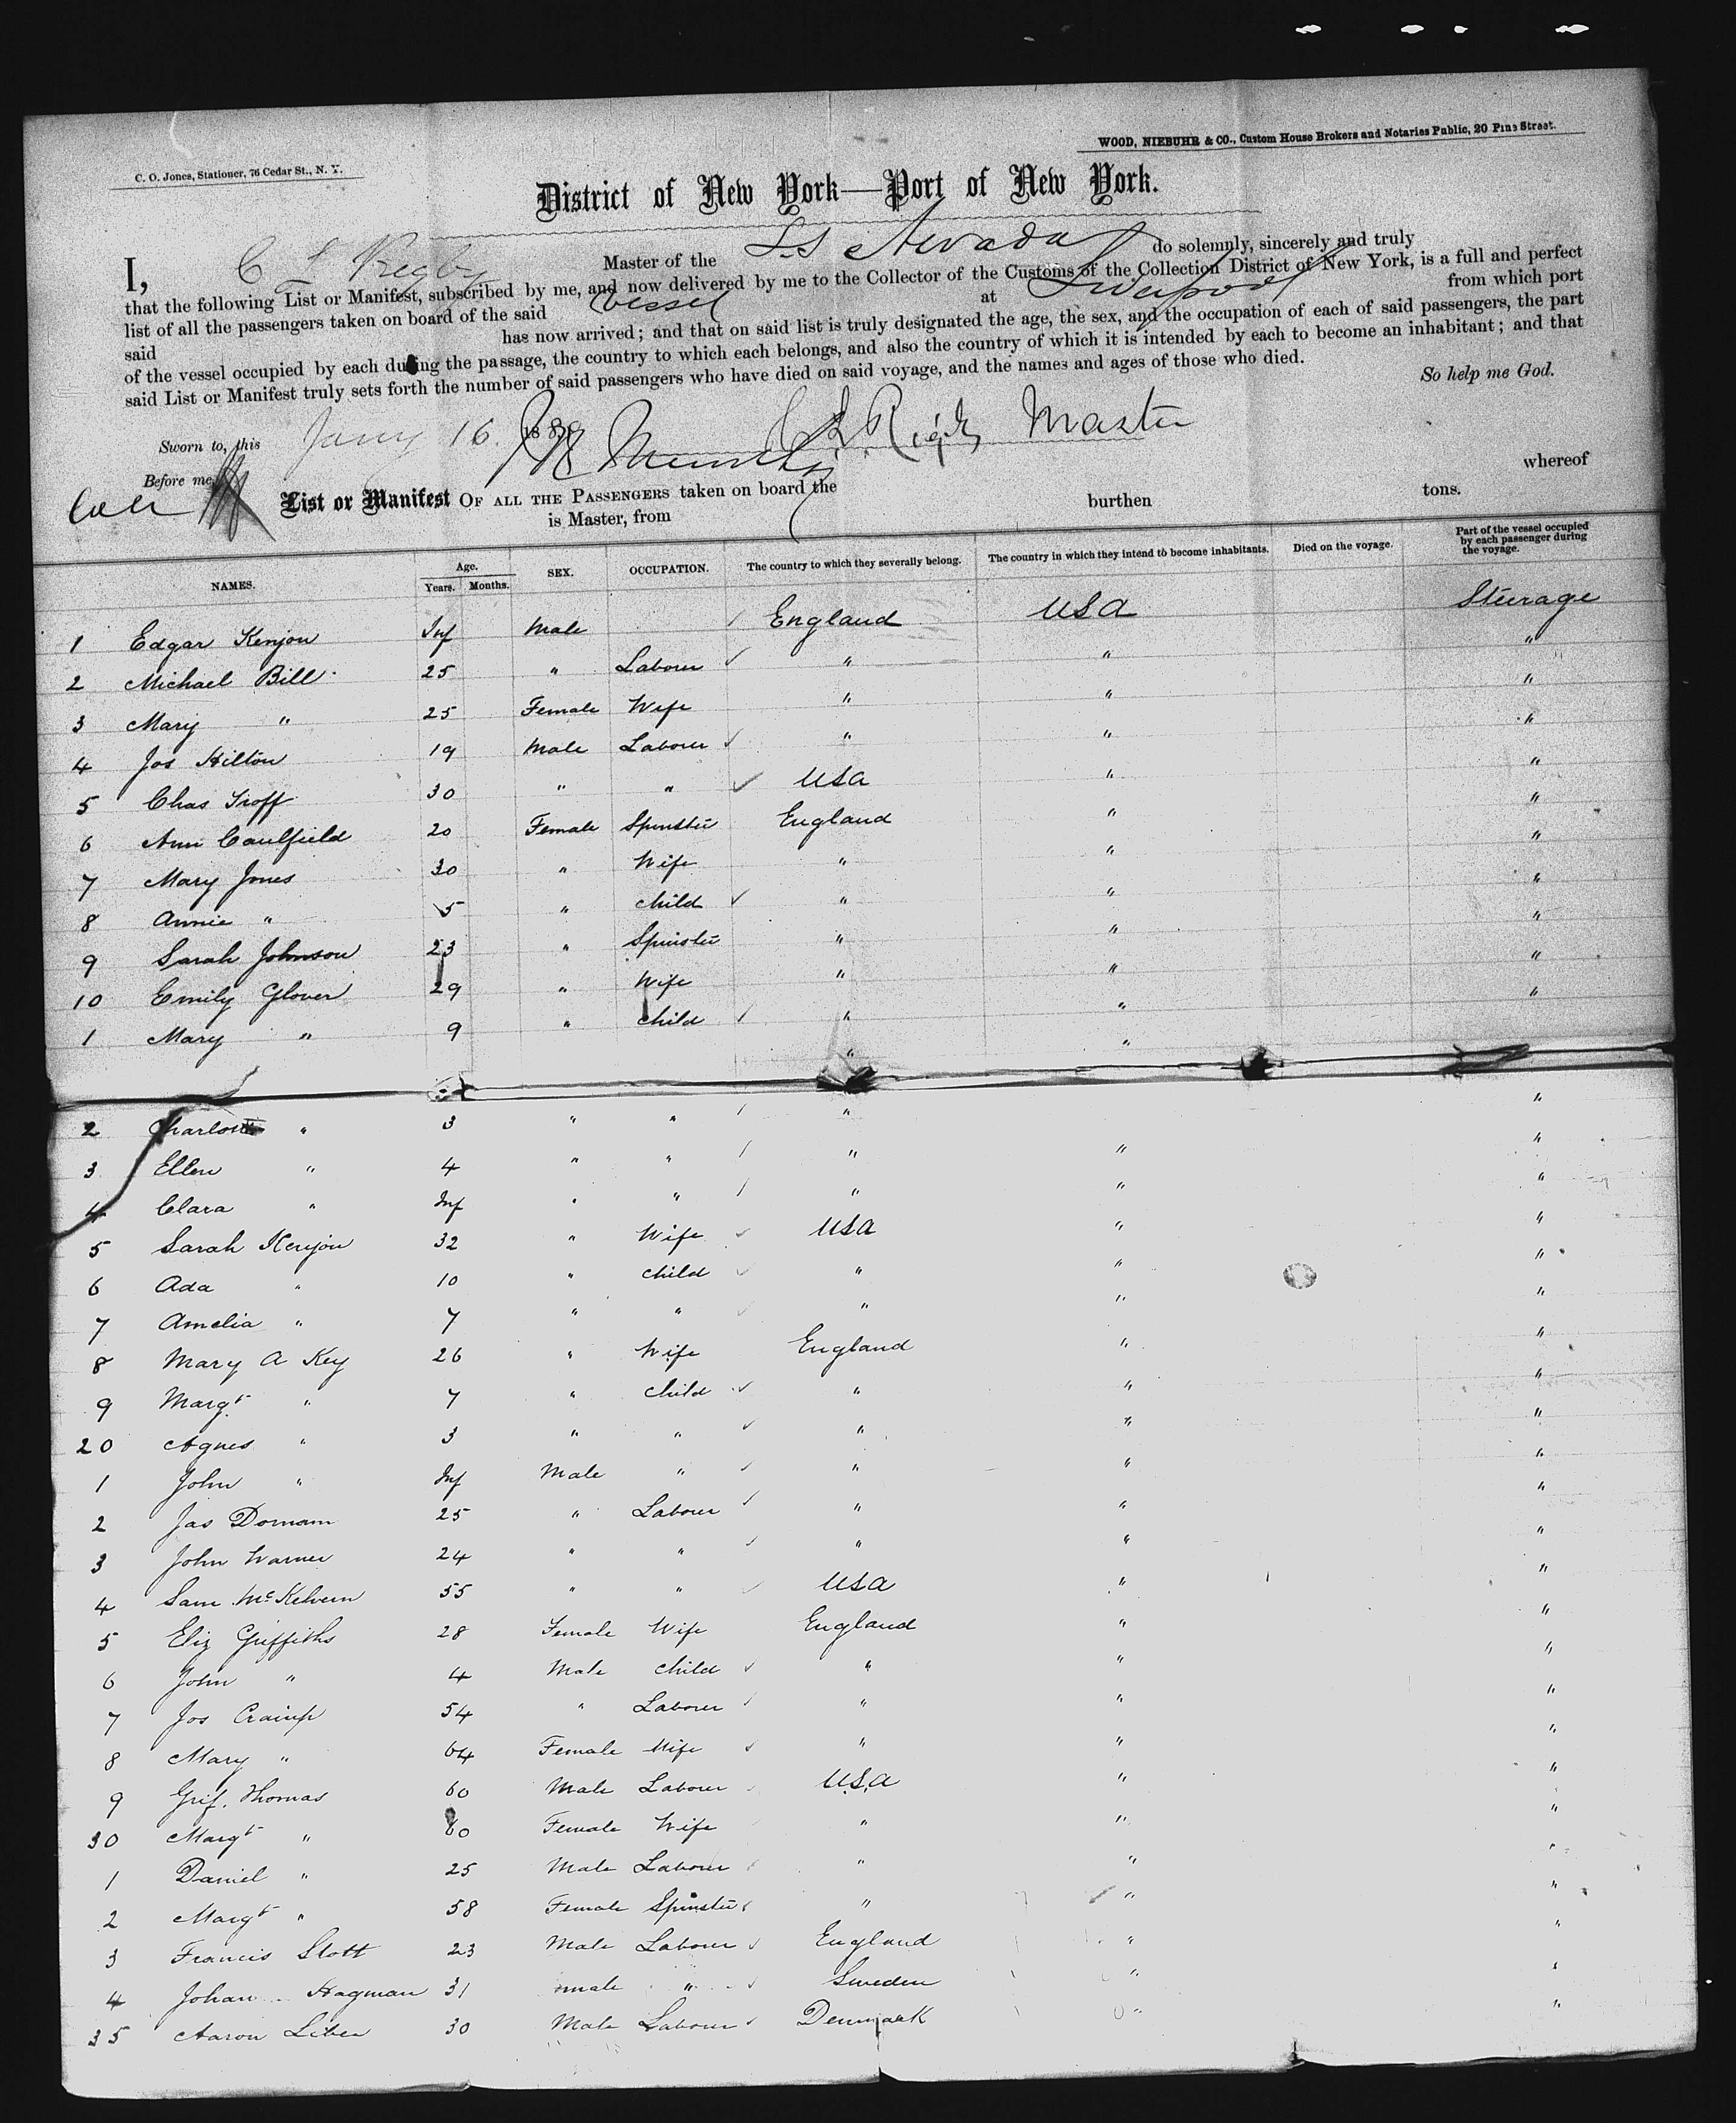 WOOD, NIEBUHR & CO., Custom House Brokers and Notaries Public, 20 Pine Street.
C. O. Jones, Stationer, 76 Cedar St., N. Y.
District of New York—Port of New York.
I, C L Rigby Master of the S.S Nevada do solemnly, sincerely and truly
that the following List or Manifest, subscribed by me, and now delivered by me to the Collector of the Customs of the Collection District of New York, is a full and perfect
list of all the passengers taken on board of the said vessel at Liverpool from which port
said has now arrived; and that on said list is truly designated the age, the sex, and the occupation of each of said passengers, the part
of the vessel occupied by each during the passage, the country to which each belongs, and also the country of which it is intended by each to become an inhabitant; and that
said List or Manifest truly sets forth the number of said passengers who have died on said voyage, and the names and ages of those who died.
So help me God.
Sworn to, this Jany 16. 188 C L Rigby Master
Before me,
List or Manifest OF ALL THE PASSENGERS taken on board the whereof
is Master, from burthen tons.
NAMES. Age. Years. Months. SEX. OCCUPATION. The country to which they severally belong. The country in which they intend to become inhabitants. Died on the voyage. Part of the vessel occupied by each passenger during the voyage.
1 Edgar Kenjon Inf Male England USA Steerage
2 Michael Bill 25 " Laborer " " "
3 Mary " 25 Female Wife " " "
4 Jos Hilton 19 Male Laborer " " "
5 Chas Troff 30 " " USA " "
6 Ann Caulfield 20 Female Spinster England " "
7 Mary Jones 30 " Wife " " "
8 Annie " 5 " Child " " "
9 Sarah Johnson 23 " Spinster " " "
10 Emily Glover 29 " Wife " " "
1 Mary " 9 " Child " " "
2 Charlotte " 3 " " " " "
3 Ellen " 4 " " " " "
4 Clara " Inf " " " " "
5 Sarah Kenjon 32 " Wife USA " "
6 Ada " 10 " Child " " "
7 Amelia " 7 " " " " "
8 Mary A Key 26 " Wife England " "
9 Margt " 7 " Child " " "
20 Agnes " 3 " " " " "
1 John " Inf Male " " " "
2 Jas Dornam 25 " Laborer " " "
3 John Warner 24 " " " " "
4 Sam McKelvern 55 " " USA " "
5 Eliz Griffiths 28 Female Wife England " "
6 John " 4 Male Child " " "
7 Jos Cramp 54 " Laborer " " "
8 Mary " 64 Female Wife " " "
9 Grif. Thomas 60 Male Laborer USA " "
30 Margt " 60 Female Wife " " "
1 Daniel " 25 Male Laborer " " "
2 Margt " 58 Female Spinster " " "
3 Francis Stott 23 Male Laborer England " "
4 Johan Hagman 31 male " Sweden " "
35 Aaron Liber 30 Male Laborer Denmark " "